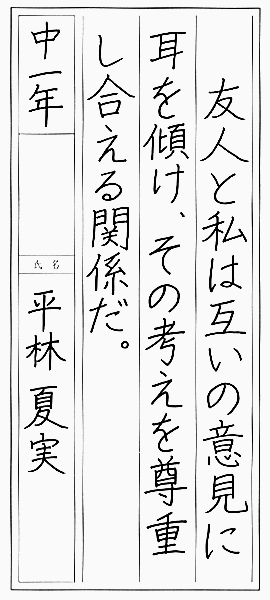 友人と私は互いの意見に
耳を傾け、その考えを尊重
し合える関係だ。
中一年
氏名
平林夏実